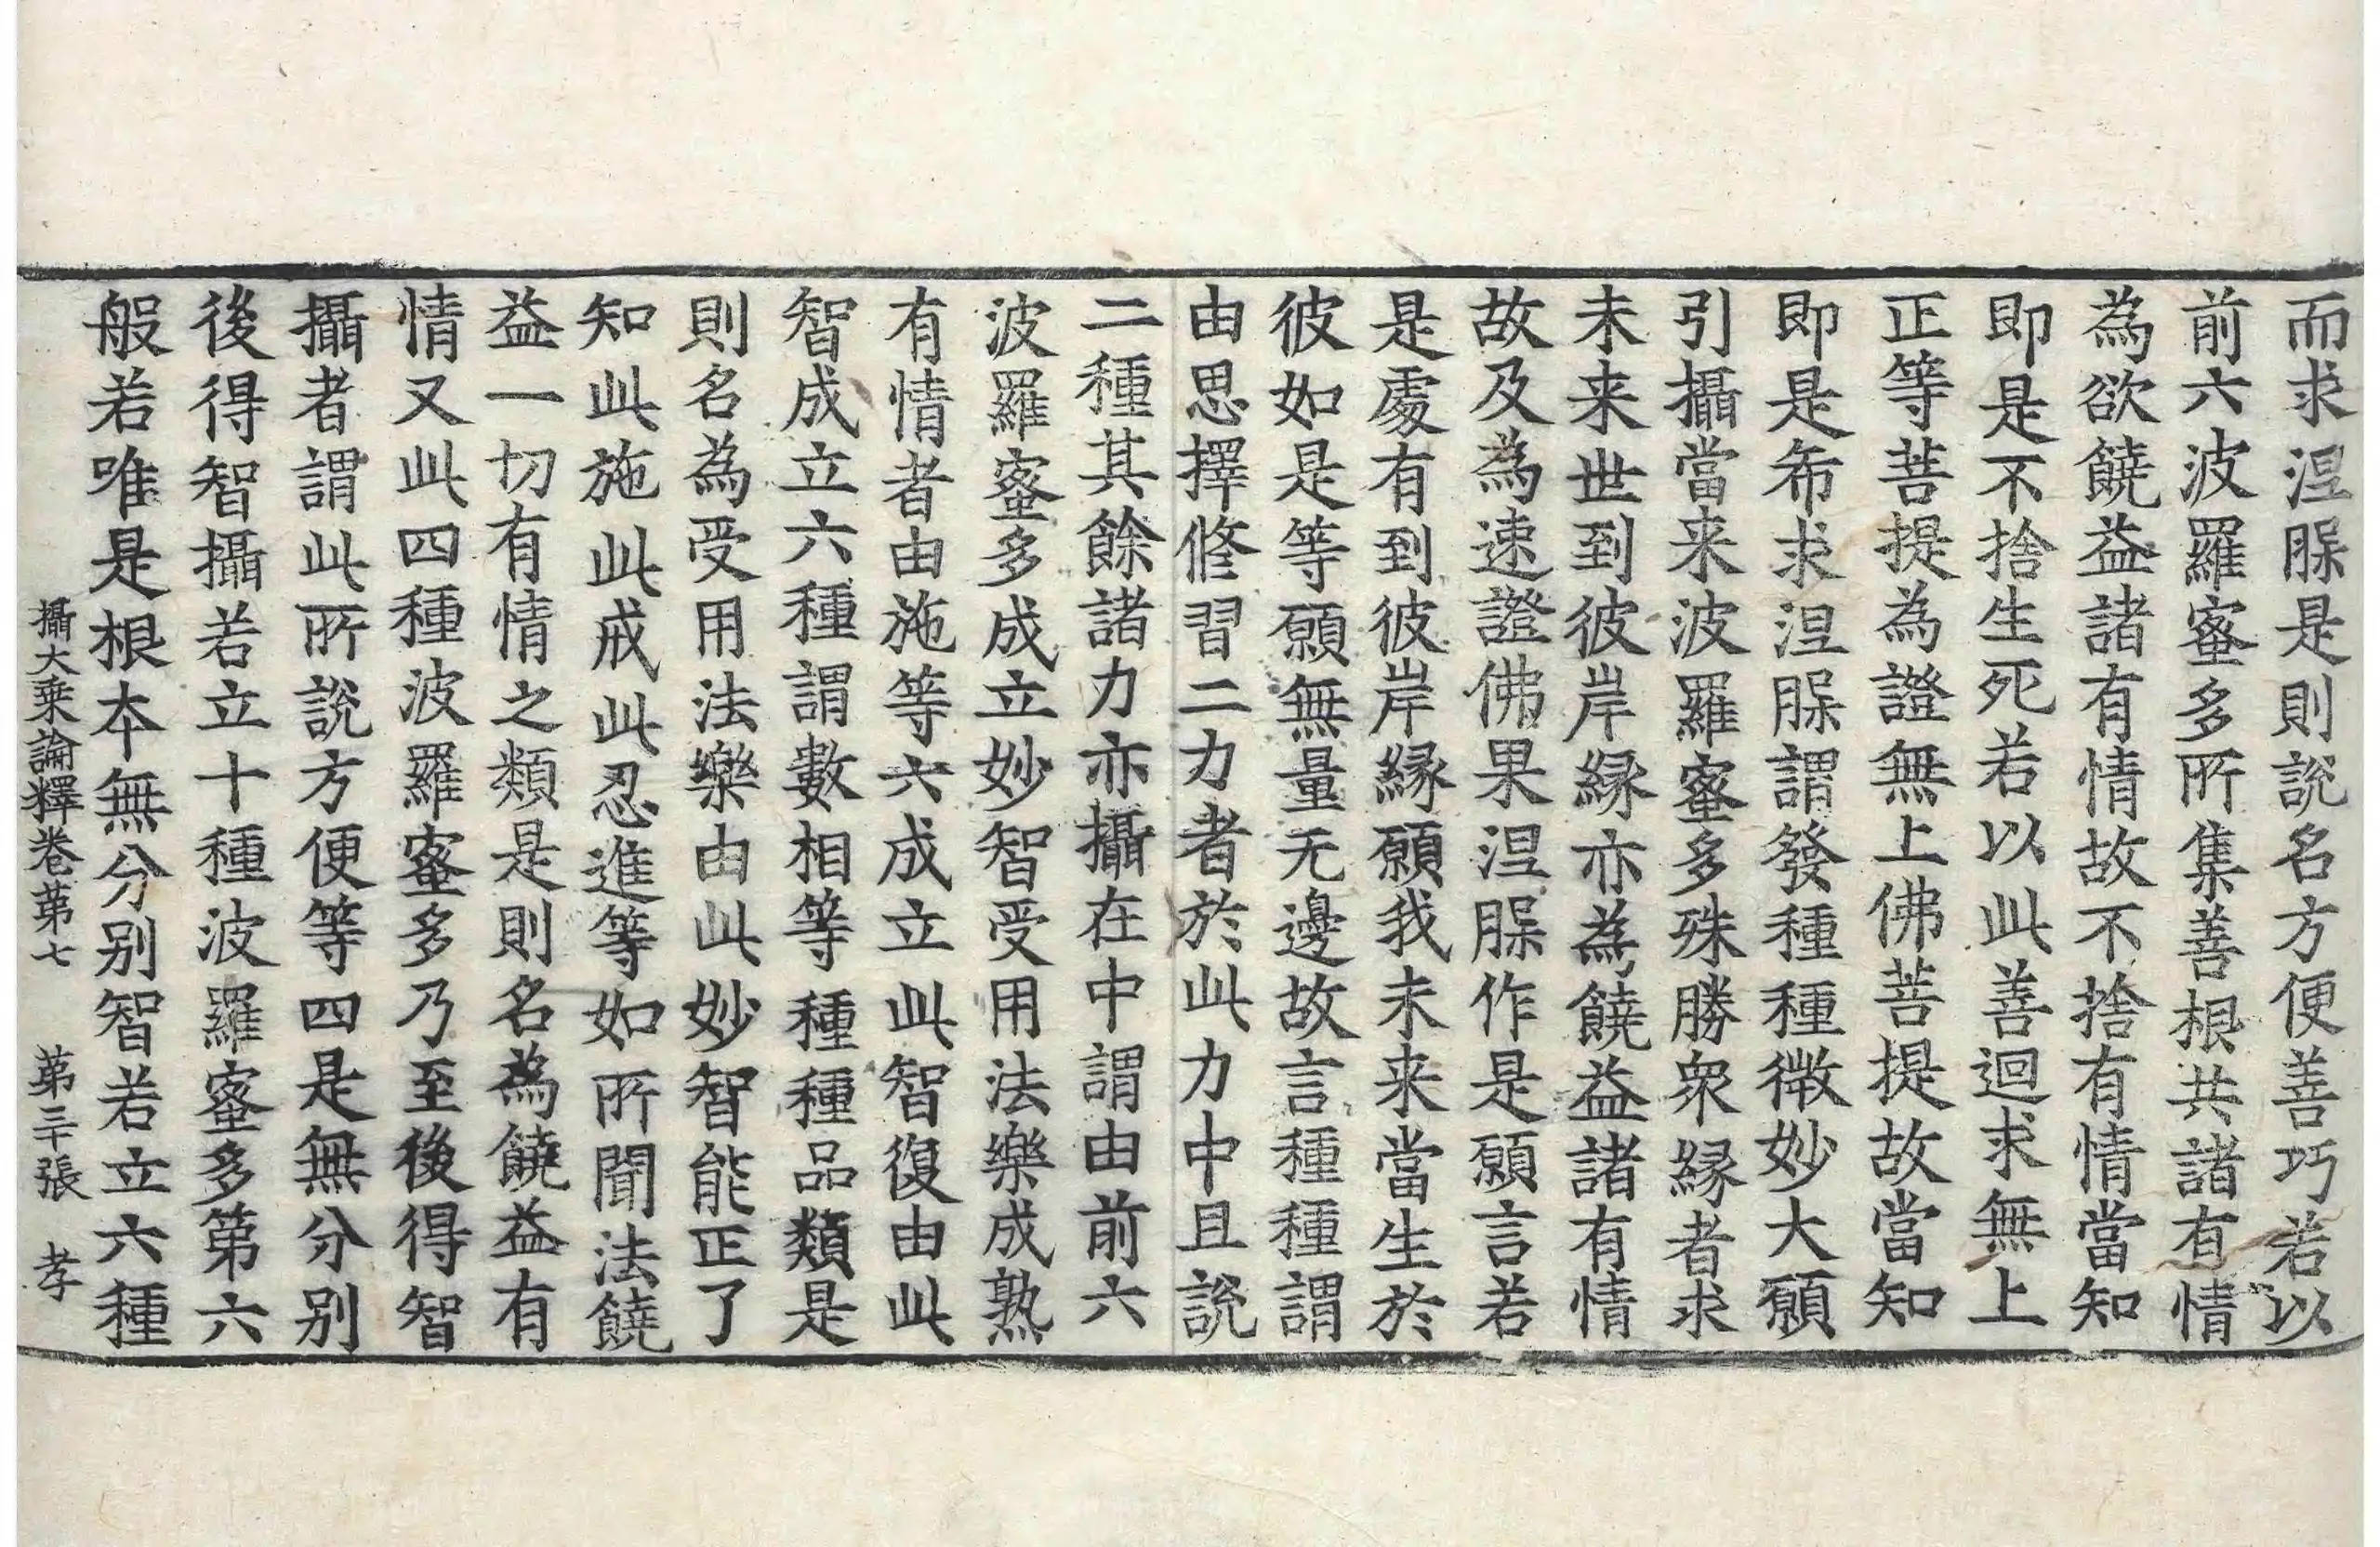 而求涅脲是則説名方便善巧若以
前六波羅蜜多所集善根共諸有情
為欲饒益諸有情故不捨有情當知
即是不捨生死若以此善迴求無上
正等菩提為證無上佛菩提故當知
即是希求涅脲謂發種種微妙大願
引攝當来波羅蜜多殊勝衆縁者求
未来世到彼岸縁亦為饒益諸有情
故及為速證佛果涅脲作是願言若
是處有到彼岸縁願我未来當生於
彼如是等願無量无邊故言種種謂
由思擇修習二力者於此力中且説
二種其餘諸力亦攝在中謂由前六
波羅蜜多成立妙智受用法樂成熟
有情者由施等六成立此智復由此
智成立六種謂數相等種種品類是
則名為受用法樂由此妙智能正了
知此施此戒此忍進等如所聞法饒
益一切有情之類是則名為饒益有
情又此四種波羅蜜多乃至後得智
攝者謂此所説方便等四是無分别
後得智攝若立十種波羅蜜多第六
般若唯是根本無分别智若立六種
攝大乗論釋卷苐七　苐三十張　孝